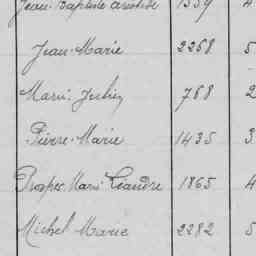 Jean Baptiste Aristide 1359 4
Jean Marie 2268 5
Marie Julien 768 2
Pierre Marie 1435 3
Prosper Marie Léandre 1865 4
Michel Marie 2282 5